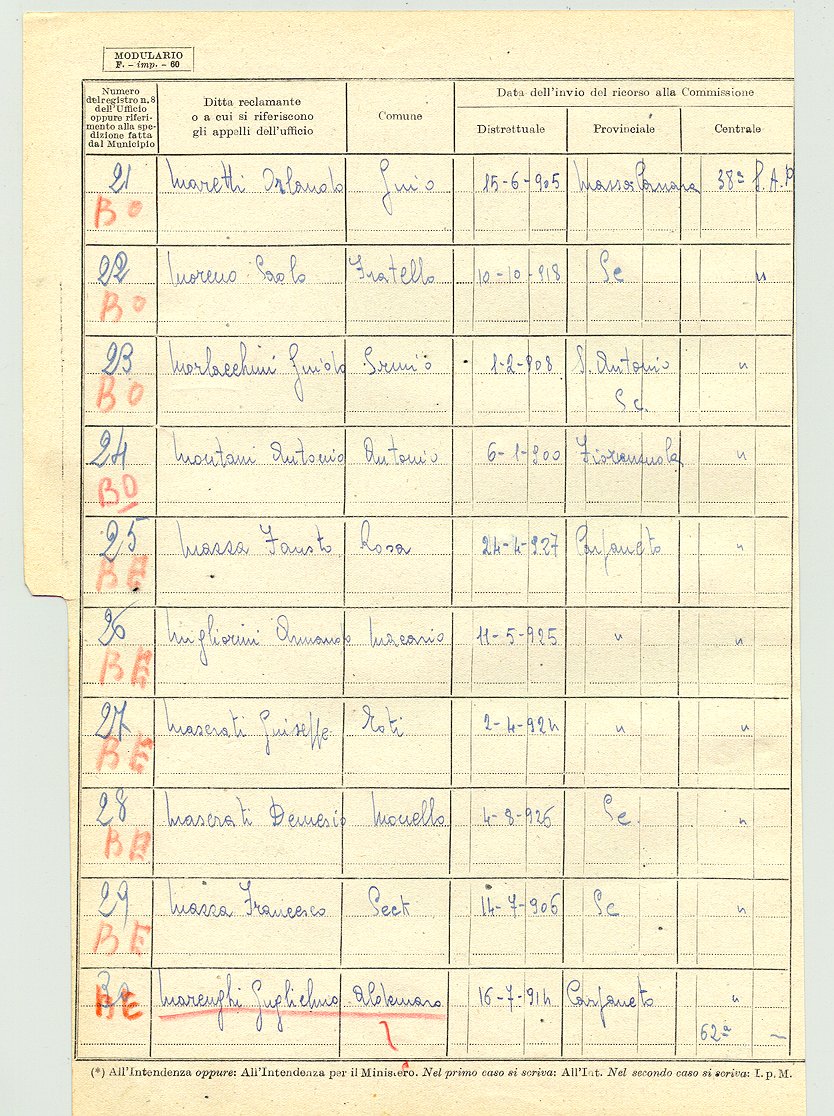 MODULARIO
F. - imp. - 60
Numero del registro n. 8 dell'Ufficio oppure riferimento alla spedizione fatta dal Municipio
Ditta reclamante o a cui si riferiscono gli appelli dell'ufficio
Comune
Data dell'invio del ricorso alla Commissione
Distrettuale Provinciale Centrale
21 Maretti Orlando 15-6-905 Massa 38ª S.A.P
BO
22 Moreno Paolo Fratello 10-10-918 Pc "
BO
23 Morlacchini Guido 1-2-908 S. Antonio "
BO Pc.
24 Montani Antonio Antonio 6-1-900 Fiorenzuola "
BO
25 Massa Fausto Rosa 24-4-927 Carpaneto "
BE
26 Migliorini Armando Macario 11-5-925 " "
BE
27 Maserati Guiseppe 2-4-924 " "
BE
28 Maserati 4-8-926 Pc. "
BE
29 Massa Francesco 14-7-906 Pc "
BE
30 Marenghi Guglielmo Aldemaro 16-7-914 Carpaneto "
BE 62ª –
(*) All'Intendenza oppure: All'Intendenza per il Ministero. Nel primo caso si scriva: All'Int. Nel secondo caso si scriva: I. p. M.